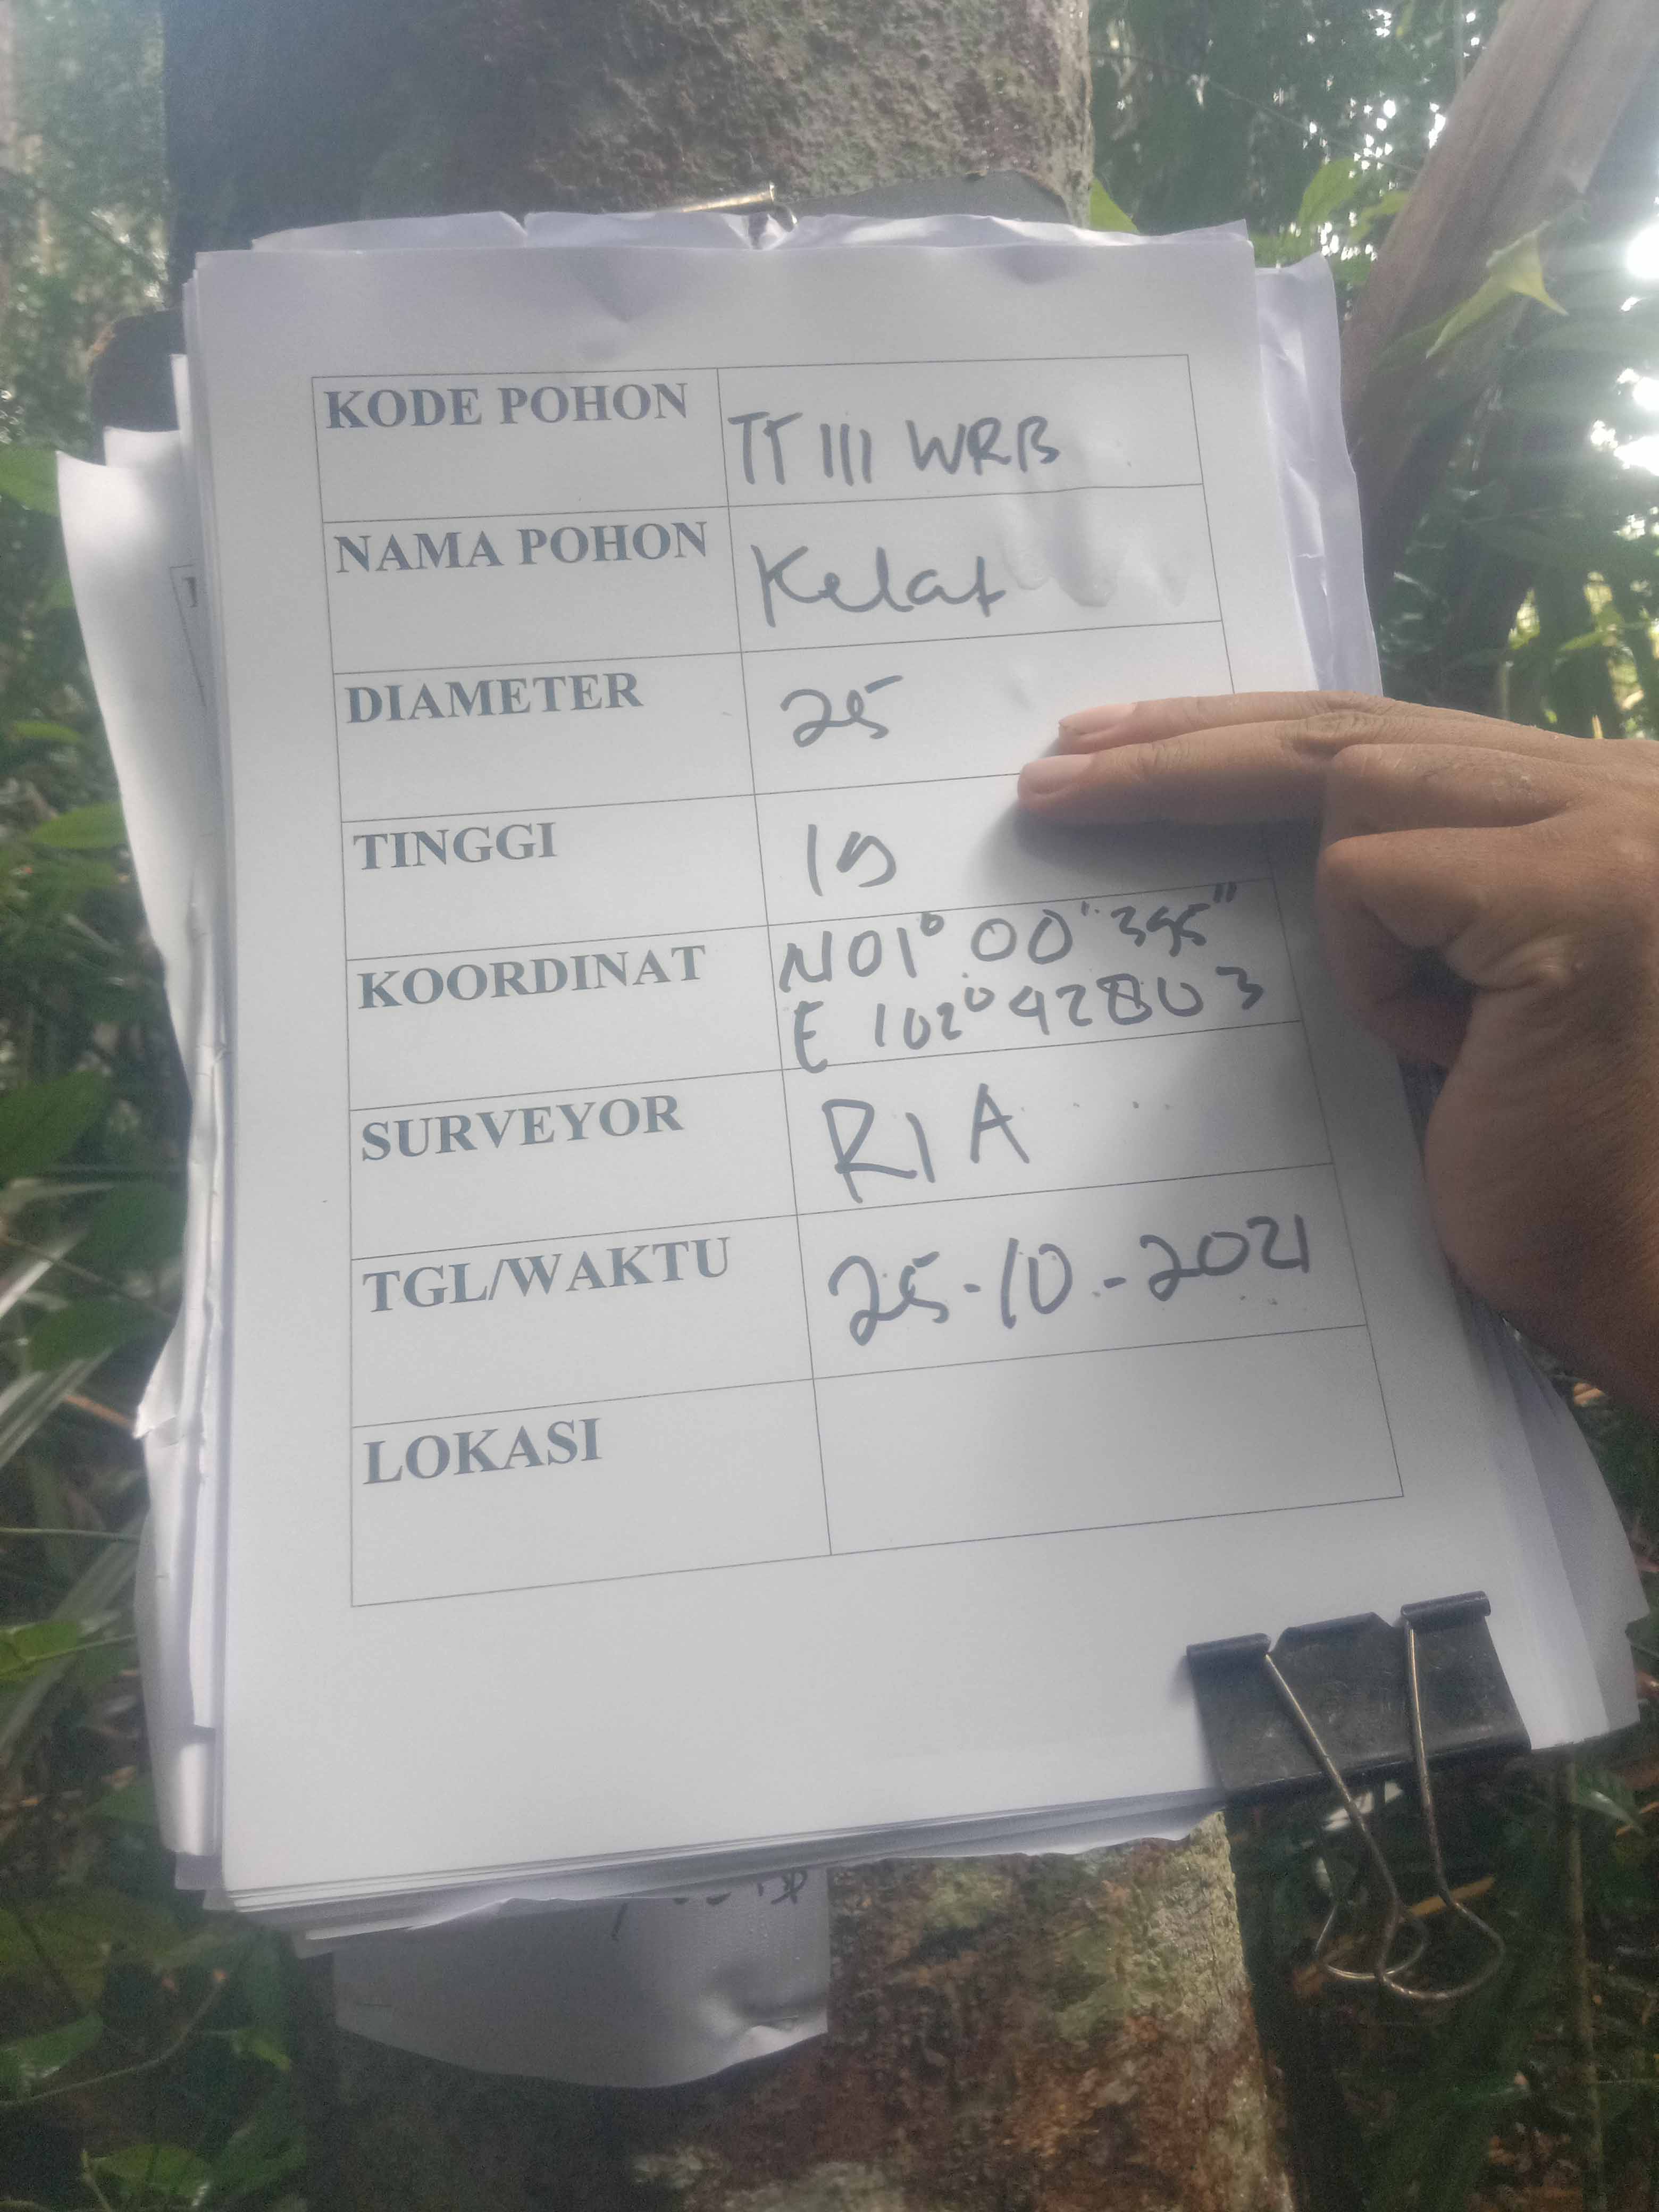 KODE POHON
TT III WRB
NAMA POHON
Kelat
DIAMETER
25
TINGGI
KOORDINAT
N01° 00" 395"
E 102° 42803
SURVEYOR
RIA
TGL/WAKTU
25-10-2021
LOKASI